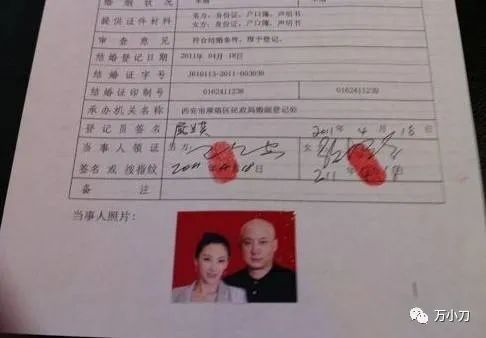 婚姻状况
提供证件材料 男方：身份证，户口簿，声明书
女方：身份证，户口簿，声明书
审查意见 符合结婚条件，准予登记。
结婚登记日期 2011年 04月 18日
结婚证字号 J610113-2011-003030
结婚证印制号 0162411239 0162411239
承办机关名称 西安市雁塔区民政局婚姻登记处
登记员签名 2011年 4月 18日
当事人领证 男方 女
签名或按指纹 2011年4月18日 2011年4月18
备注
当事人照片：
万小刀